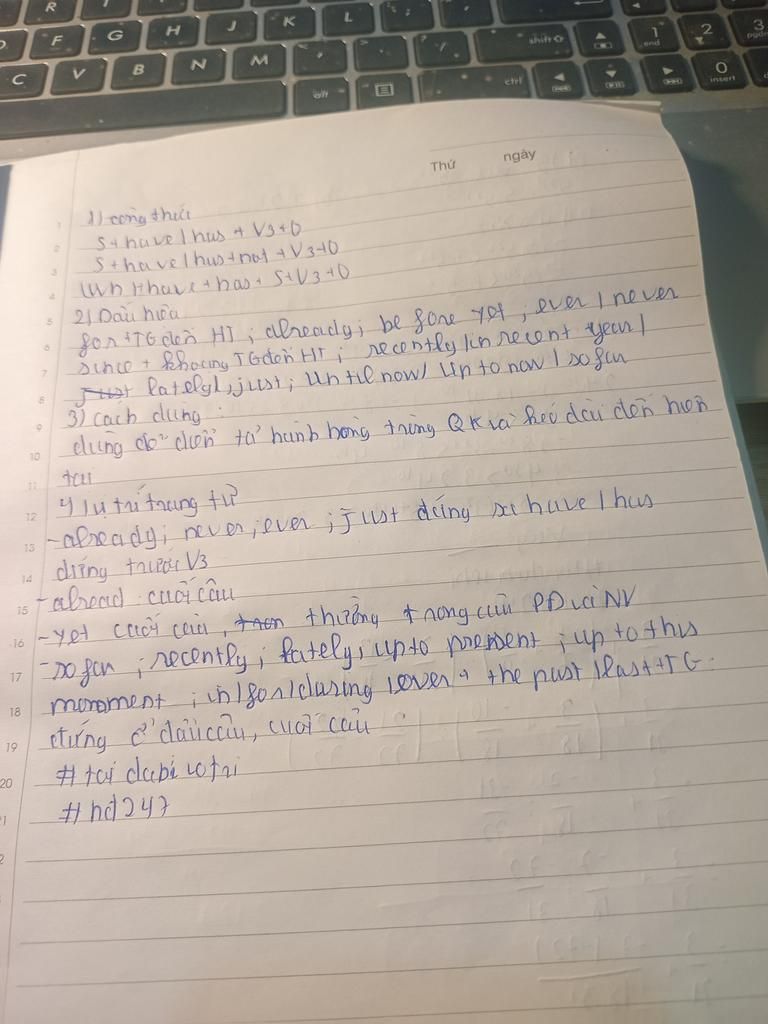 R
K
L
D
F
G
H
J
C
V
B
N
M
alt
shift
ctrl
1
end
2
3
pgdn
0
insert
Thứ ngày
1) công thức
S + have / has + V3 + O
S + have / has + not + V3 + O
(Wh) + have + has + S + V3 + O
2) Dấu hiệu
for + TG đến HT ; already ; before yet ; ever / never
since + khoảng TG đến HT ; recently / in recent year /
just lately, just ; until now / up to now / so far
3) cách dùng
dùng để diễn tả hành động trong QK và kéo dài đến hiện
tại
4) vị trí trạng từ
- already ; never ; ever ; just đứng sau have / has
đứng trước V3
- alread cuối câu
- yet cuối câu, thường trong câu PĐ và NV
- so far ; recently ; lately ; up to present ; up to this
moment ; in / for / during / over + the past / last + TG
đứng ở đầu câu, cuối câu
# hd247